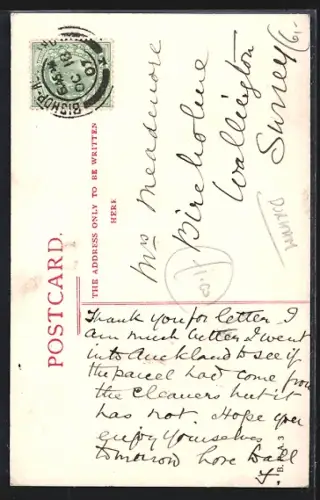 POSTCARD.
THE ADDRESS ONLY TO BE WRITTEN
HERE
Mrs Meademore
Bircholme
Wallington
Surrey
Thank you for letter I
am much better I went
into Auckland to see if
the parcel had come from
the cleaners but it
has not. Hope you
enjoy yourselves
tomorrow love to all
BISHOP
OC 10
07